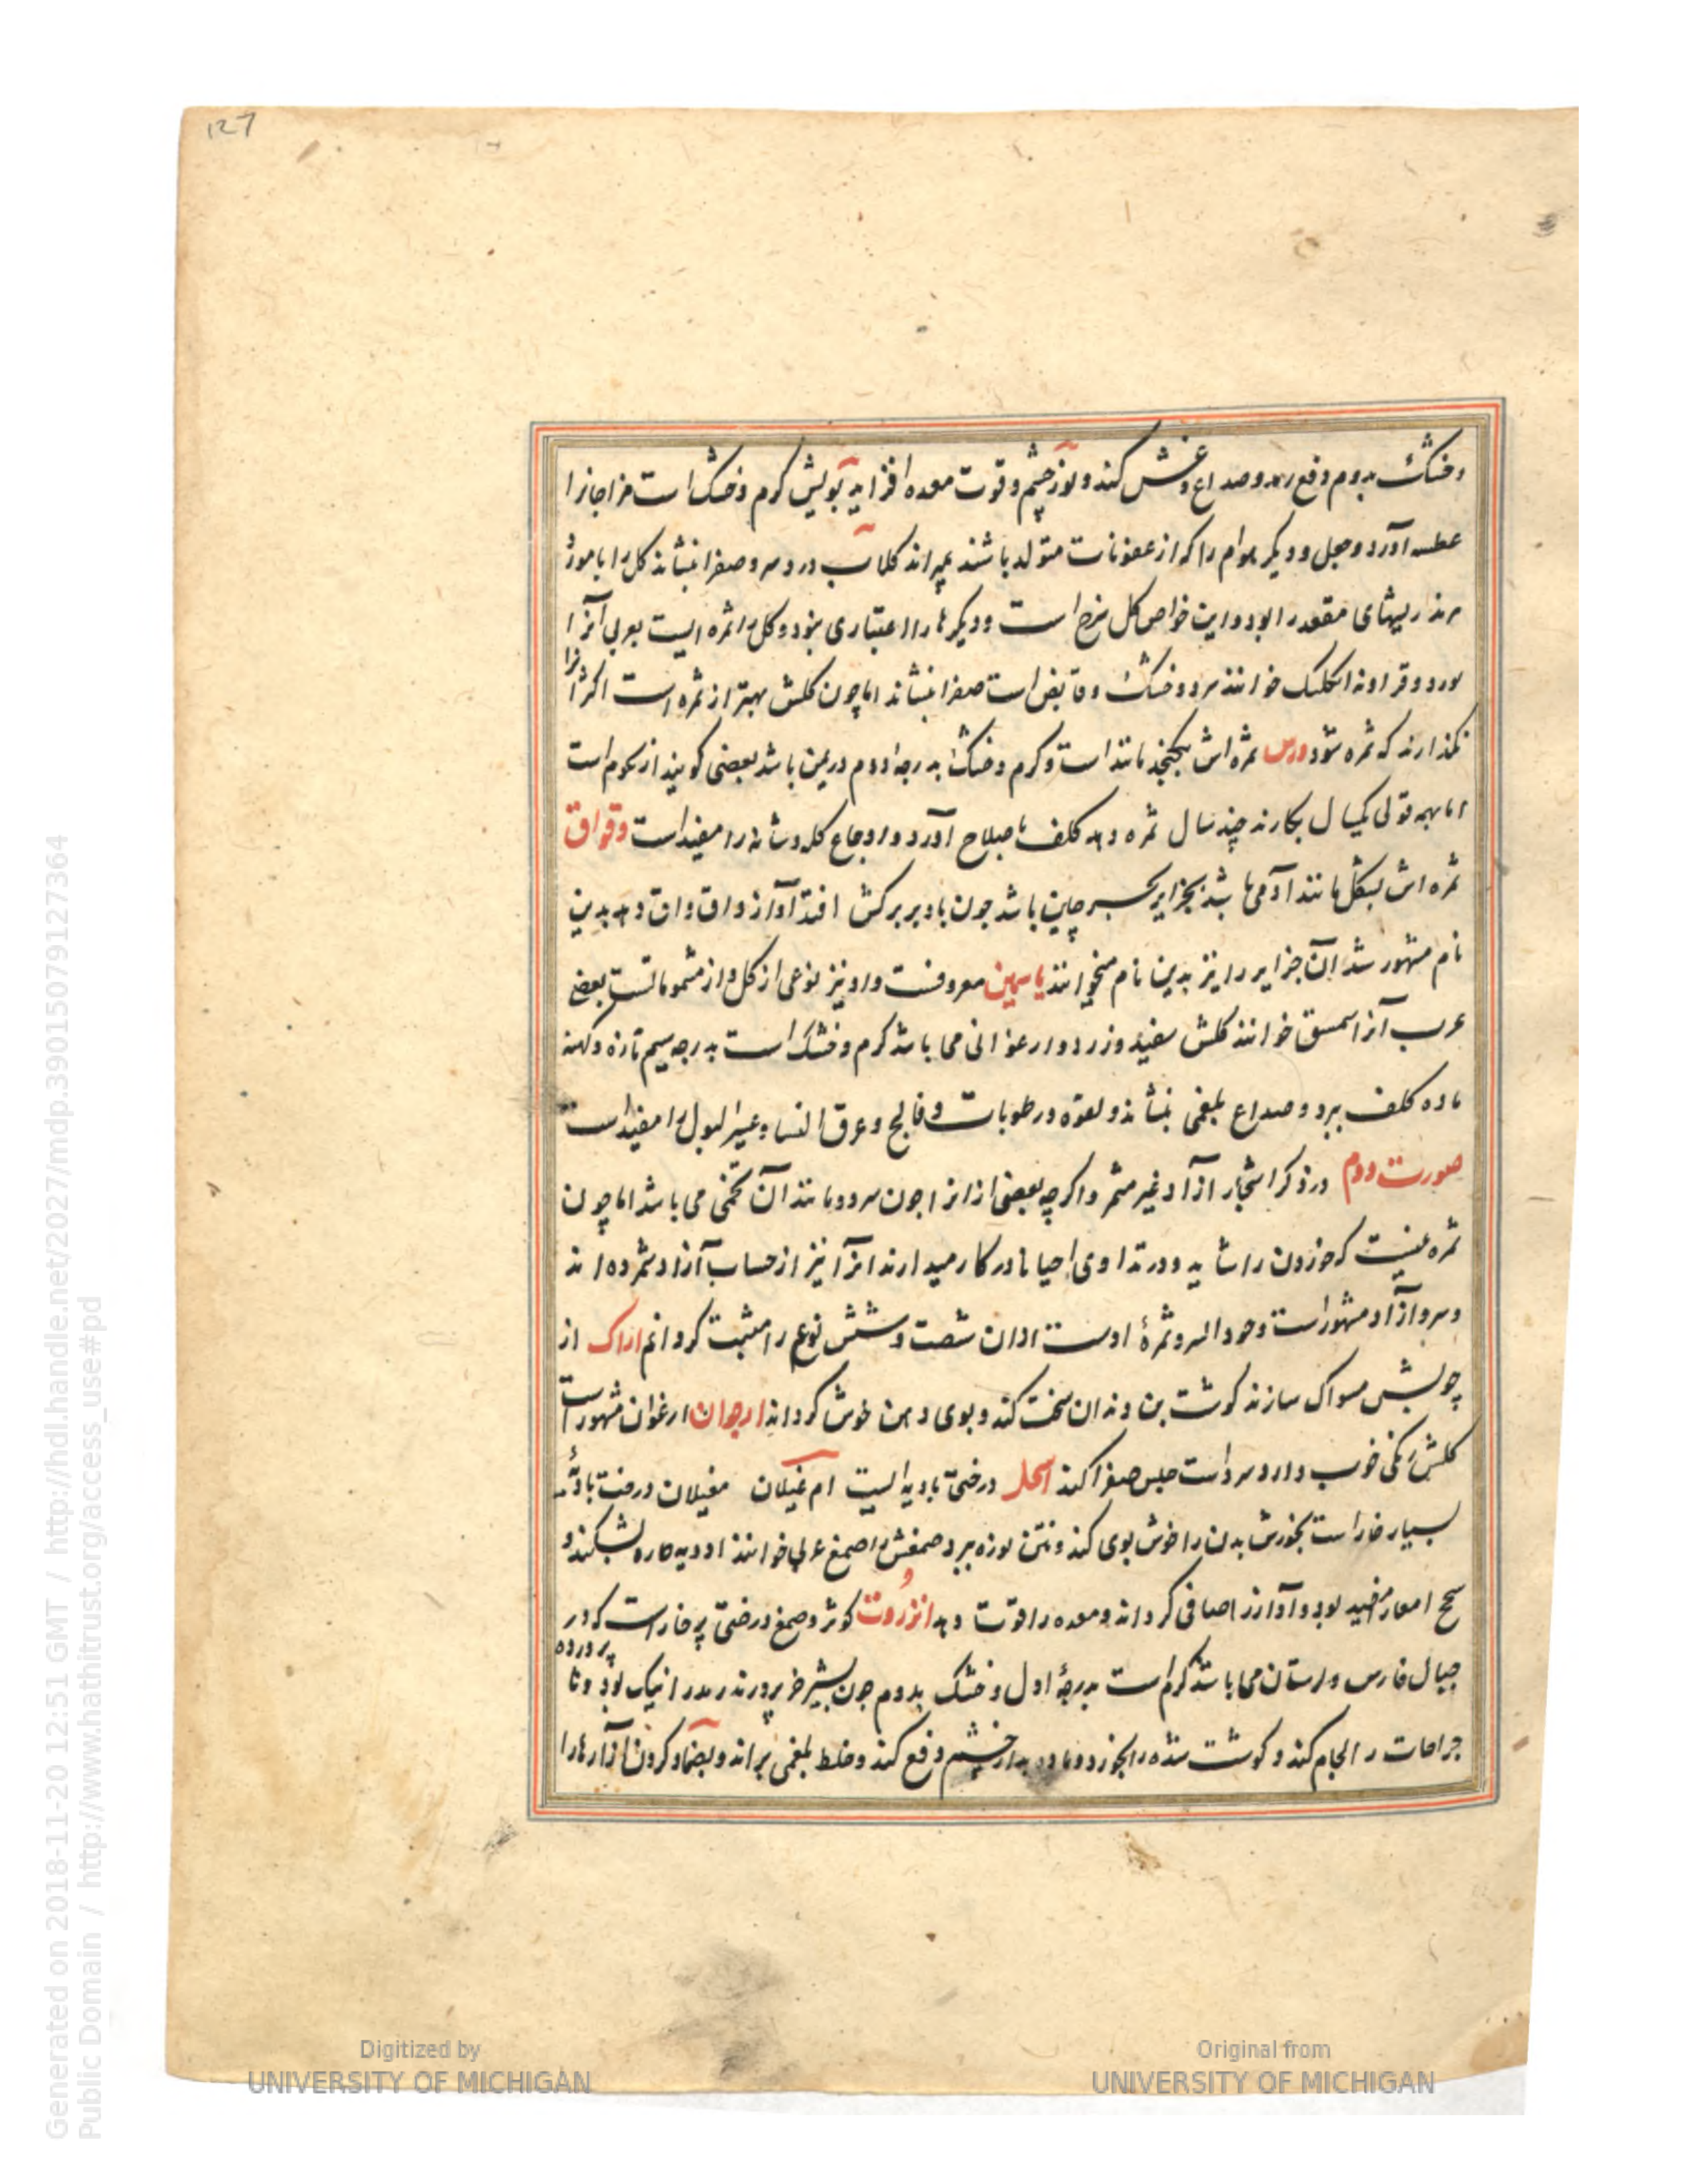 127
وخشک بدوم دفع رمد و صداع و غش کند و نور چشم و قوت معده افزاید بویش گرم و خشک است مزاجانرا
عطسه آورد و جعل و دیگر هوام را که از عفونات متولد باشند بمیراند کلاب درد سر و صفرا بنشاند کل را با موز
ریشهای مقعد را بود و این خواص کل سرخ است و دیکرها را اعتباری نبود و کل را ثمره ایست بعربی آنرا
ورد و قراونه انکلیک خوانند سرد و خشک و قابض است صفرا بنشاند اما چون کلش بهتر از ثمره است اکثر آنرا
نکذارند که ثمره شود ورس ثمره اش بکنجد مانند است و کرم و خشک بدرجه دوم در یمن باشد بعضی کویند از سموم است
اما بهمه قولی یکسال بکارند چند سال ثمره دهد کلف باصلاح آورد و اوجاع کلی و مثانه را مفید است وقواق
ثمره اش بشکل مانند آدمی باشد بجزایر بحر چین باشد چون باد بر برکش افتد آواز واق واق دهد بدین
نام مشهور شد آن جزایر را نیز بدین نام میخوانند یاسمین معروفست و او نیز نوعی از کل و از مشمومانست بعضی
عرب آنرا سمسق خوانند کلش سفید و زرد و ارغوانی می باشد کرم و خشک است بدرجه سیم تازه و کهنه
ماده کلف ببرد و صداع بلغمی بنشاند و لقوه و رطوبات و فالج و عرق النسا و عسر البول را مفید است
صورت دوم در ذکر اشجار آزاد غیر مثمر و اکرچه بعضی از انرا چون سرد و مانند آن تخمی می باشد اما چون
ثمره نیست که خوردن را شاید و در تداوی احیانا در کار میدارند انرا نیز از حساب آزاد شمرده اند
و سرو آزاد مشهور است و جود السرو ثمرهٔ اوست ازان شصت و شش نوع را مثبت کردانم اراک از
چوبش مسواک سازند کوشت بن دندان سخت کند و بوی دهن خوش کرداند ارجوان ارغوان مشهور است
کلش رنکی خوب دارد سرد است حبس صفرا کند اسحل درختی بادیه ایست ام غیلان مغیلان درخت بادیه
بسیار خار است بخورش بدن را خوش بوی کند و نتن نوره ببرد صمغش را صمغ عربی خوانند ادویه حاره بشکند و
سحج امعا را مفید بود و آواز را صافی کرداند و معده را قوت دهد و انزروت کوثر و صمغ درختی پر خار است که در
جبال فارس و لرستان می باشد کرم است بدرجهٔ اول و خشک بدوم چون بشیر خر پرورند رمد را نیک بود و نا پرورده
جراحات را لحام کند و کوشت شده را بخورد و ماده رمد از چشم دفع کند و خلط بلغمی براند و بضماد کردن آزارها را
Generated on 2018-11-20 12:51 GMT / http://hdl.handle.net/2027/mdp.39015079127364
Public Domain / http://www.hathitrust.org/access_use#pd
Digitized by
UNIVERSITY OF MICHIGAN
Original from
UNIVERSITY OF MICHIGAN